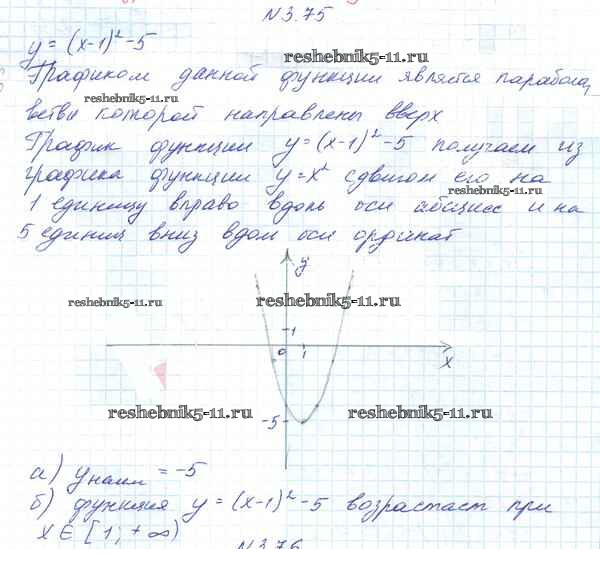 N 3.75
y = (x-1)² - 5
reshebnik5-11.ru
Графиком данной функции является парабола,
reshebnik5-11.ru
ветви которой направлены вверх
График функции y = (x-1)² - 5 получаем из
графика функции y = x² сдвигом его на
reshebnik5-11.ru
1 единицу вправо вдоль оси абсцисс и на
5 единиц вниз вдоль оси ординат
y
reshebnik5-11.ru reshebnik5-11.ru
1
0 1 x
reshebnik5-11.ru reshebnik5-11.ru
-5
а) y наим = -5
б) функция y = (x-1)² - 5 возрастает при
x ∈ [1; +∞)
N 3.76